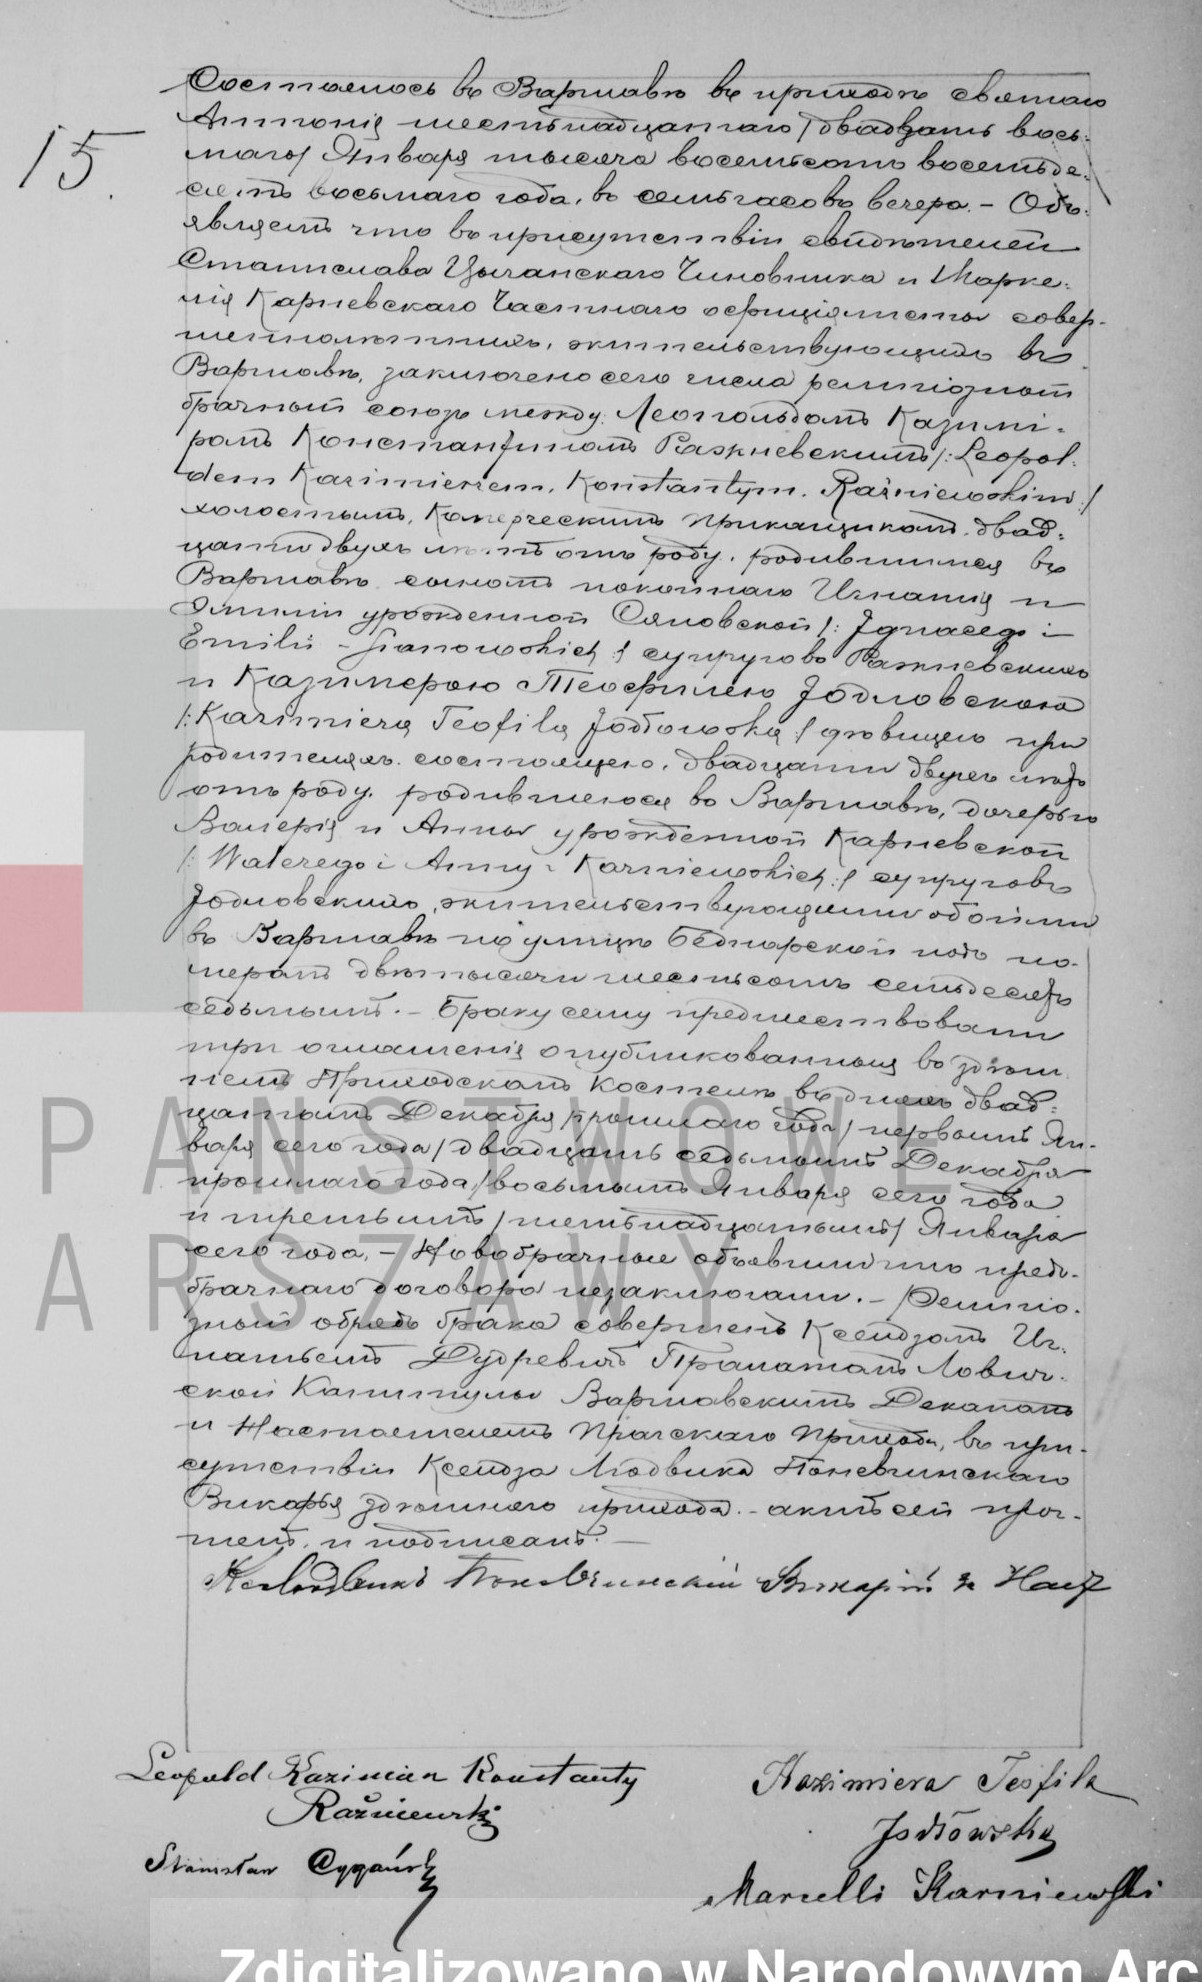 15.
Состоялось въ Варшавѣ въ приходѣ святаго
Антонія шестьнадцатаго /двадцать вось-
маго/ Января тысяча восемьсотъ восемьде-
сятъ восьмаго года, въ семь часовъ вечера. – Объ-
являемъ что въ присутствіи свидѣтелей
Станислава Цыганскаго Чиновника и Марке-
лія Карневскаго Частнаго оффиціялиста совер-
шеннолѣтнихъ, жительствующихъ въ
Варшавѣ, заключено сего числа религіозный
брачный союзъ между: Леопольдомъ Казимі-
ромъ Константиномъ Ражневскимъ /:Leopol-
dem Kazimierzem, Konstantym, Raźniewskim:/
холостымъ, Комерческимъ прикащикомъ, двад-
цати двухъ лѣтъ отъ роду, родившимся въ
Варшавѣ сыномъ покойнаго Игнатія и
Эмиліи урожденной Сяновской /: Ignacego i
Emilii - Sianowskich :/ супруговъ Ражневскихъ
и Казимерою Теофилею Іодловскою
/:Kazimierą Teofilą Jodłowską :/ дѣвицею при
родителяхъ состоящею, двадцати двухъ лѣтъ
отъ роду, родившеюся въ Варшавѣ, дочерью
Валерія и Анны урожденной Карневской
/: Walerego i Anny z Karniewskich :/ супруговъ
Іодловскихъ, жительствующими обоими
въ Варшавѣ по улицѣ Беднарской подъ но-
меромъ двѣ тысячи шестьсотъ семьдесятъ
седьмымъ. – Браку сему предшествовали
три оглашенія опубликованныя въ здѣш-
немъ Приходскомъ Костелѣ въ дняхъ двад-
цатомъ Декабря прошлаго года / первымъ Ян-
варя сего года / двадцать седьмымъ Декабря
прошлаго года / восьмымъ Января сего года
и третьимъ / пятьнадцатымъ / Января
сего года. – Новобрачные объявили что пред-
брачнаго договора незаключали. – Религіо-
зный обрядъ брака совершенъ Ксендзомъ Иг-
натьемъ Дудревичъ Прелатомъ Лович-
ской Капитулы Варшавскимъ Деканомъ
и Настоятелемъ Прагскаго Прихода, въ при-
сутствіи Ксендза Людвика Поневчинскаго
Викарья здѣшняго прихода. – актъ сей проч-
тенъ, и подписанъ. –
Кс Людвикъ Поневчинскій Викарій за Наст
Leopold Kazimierz Konstanty
Raźniewski
Kazimiera Teofila
Jodłowska
Stanisław Cygański
Marcelli Karniewski
PAŃSTWOWE
ARSZAWY
Zdigitalizowano w Narodowym Arc